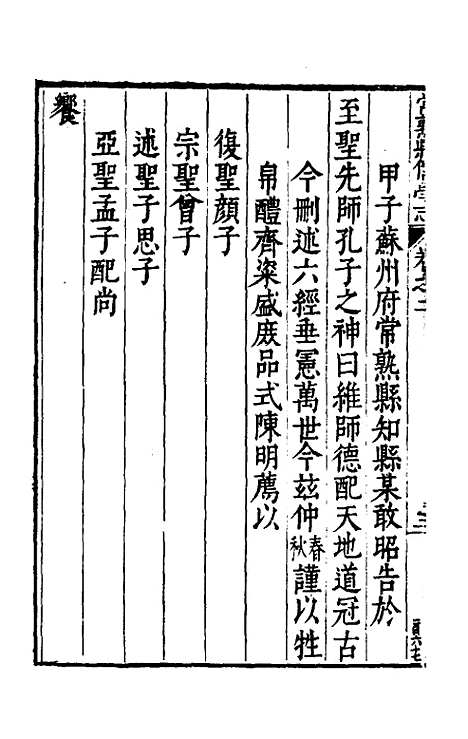 常熟縣儒學志 卷之二
甲子蘇州府常熟縣知縣某敢昭告於
至聖先師孔子之神曰維師德配天地道冠古
今刪述六經垂憲萬世今玆仲春秋謹以牲
帛醴齊粢盛庶品式陳明薦以
復聖顏子
宗聖曾子
述聖子思子
亞聖孟子配尚
饗